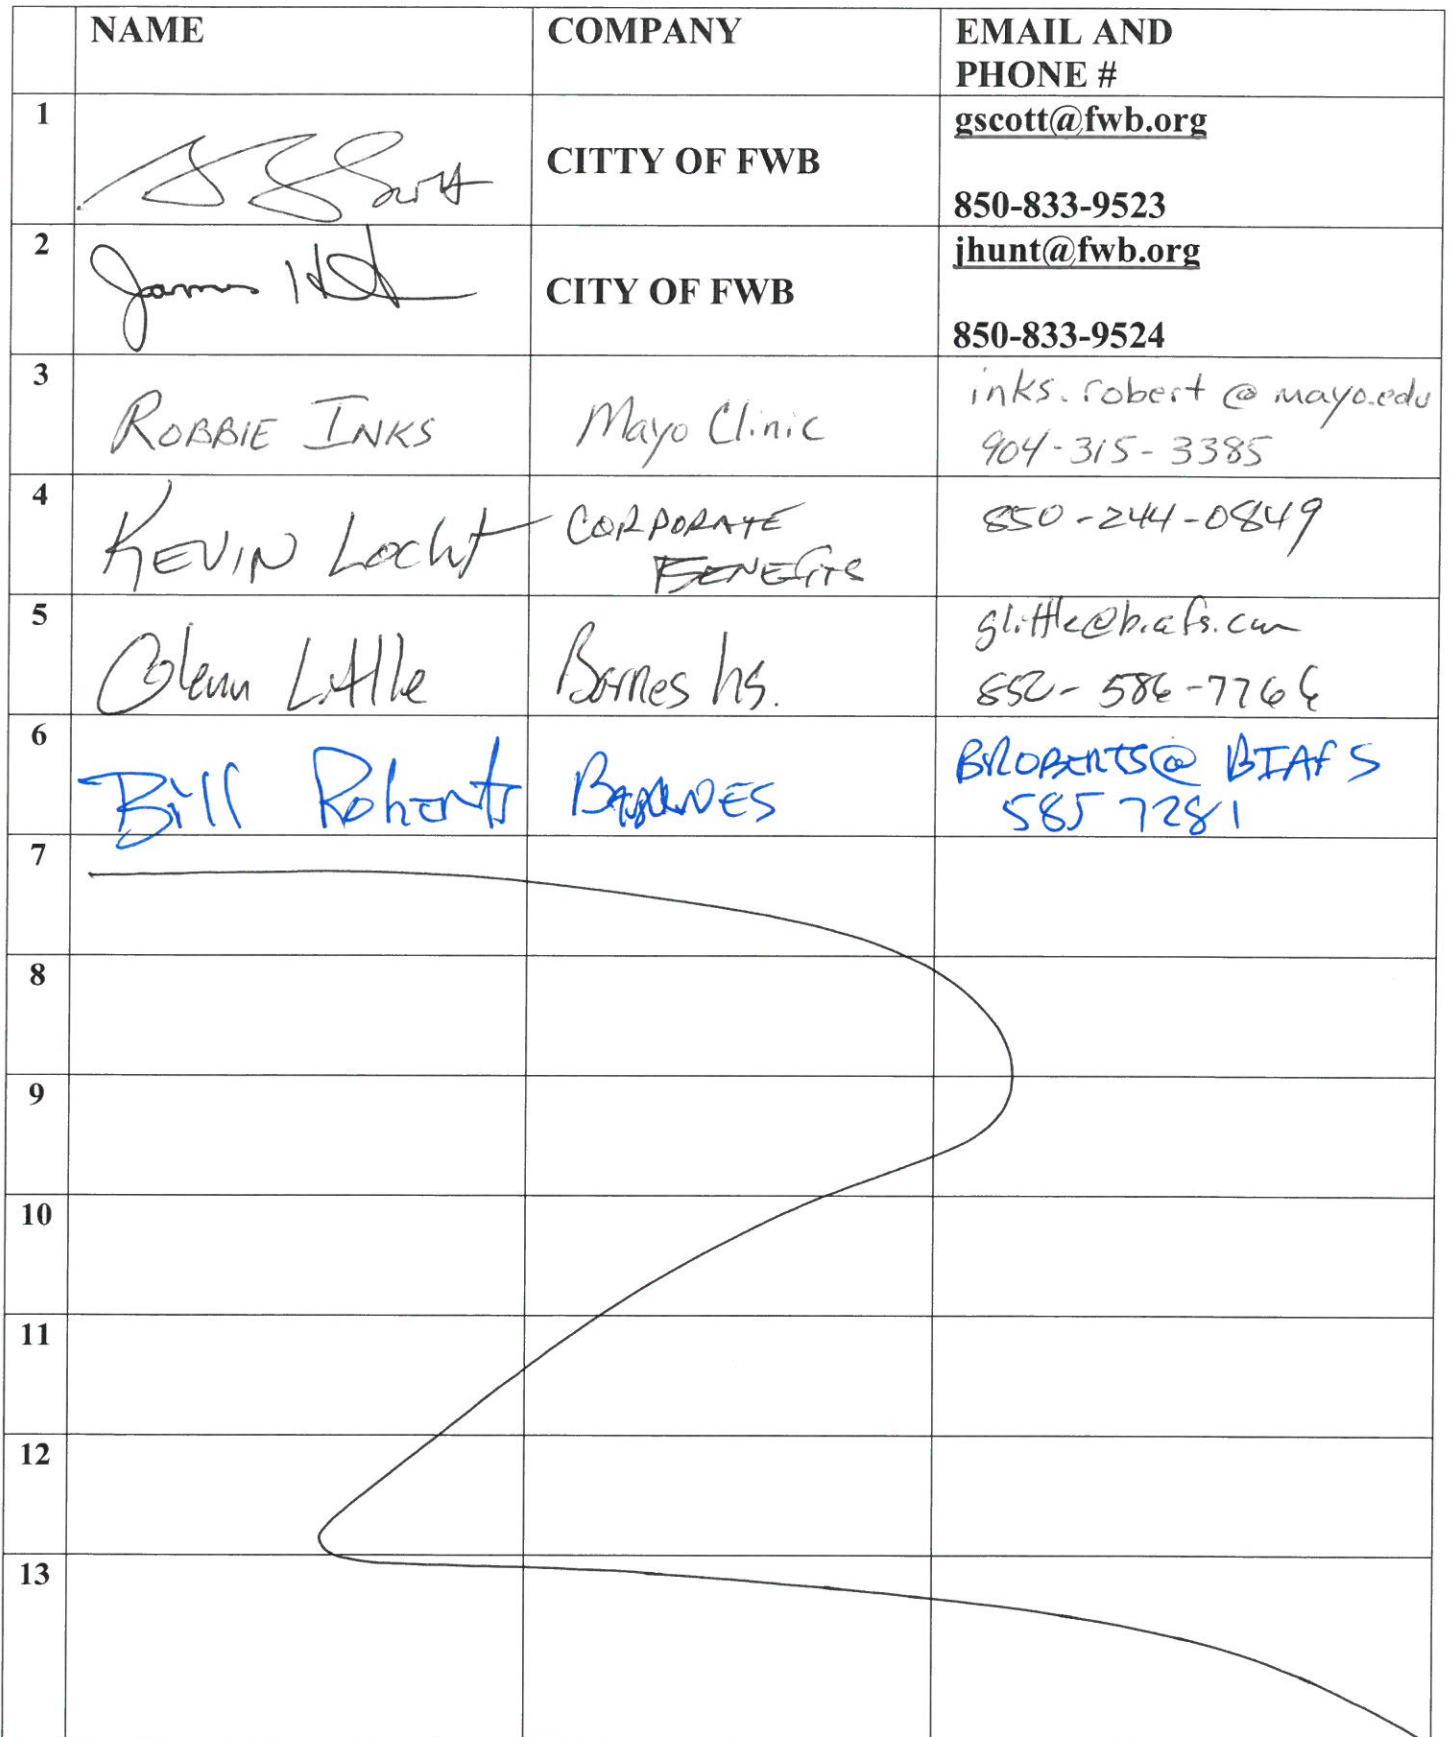 NAME COMPANY EMAIL AND
PHONE #
1 Scott CITTY OF FWB gscott@fwb.org
850-833-9523
2 James CITY OF FWB jhunt@fwb.org
850-833-9524
3 ROBBIE INKS Mayo Clinic inks.robert@mayo.edu
904-315-3385
4 KEVIN Locht CORPORATE 850-244-0849
BENEFITS
5 Glenn Little Barnes Ins. glittle@biafs.com
850-586-7766
6 Bill Roberts BROBERTS@BIAFS
585 7281
7
8
9
10
11
12
13